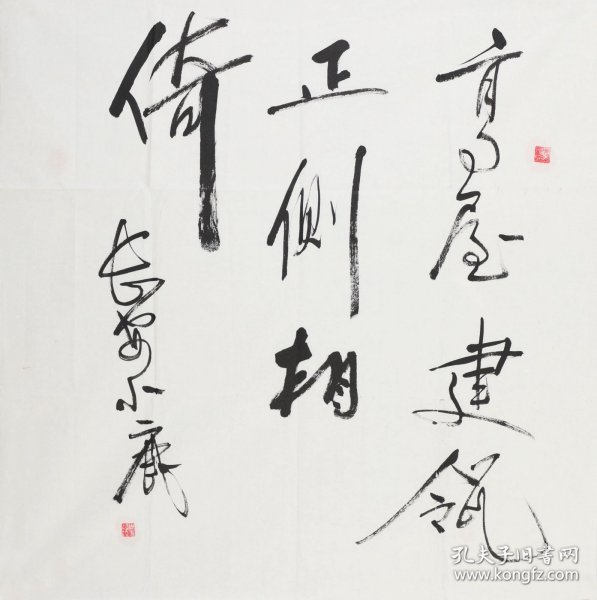 高屋建瓴
正侧相
倚
长安小鹿
孔夫子旧书网
www.kongfz.com